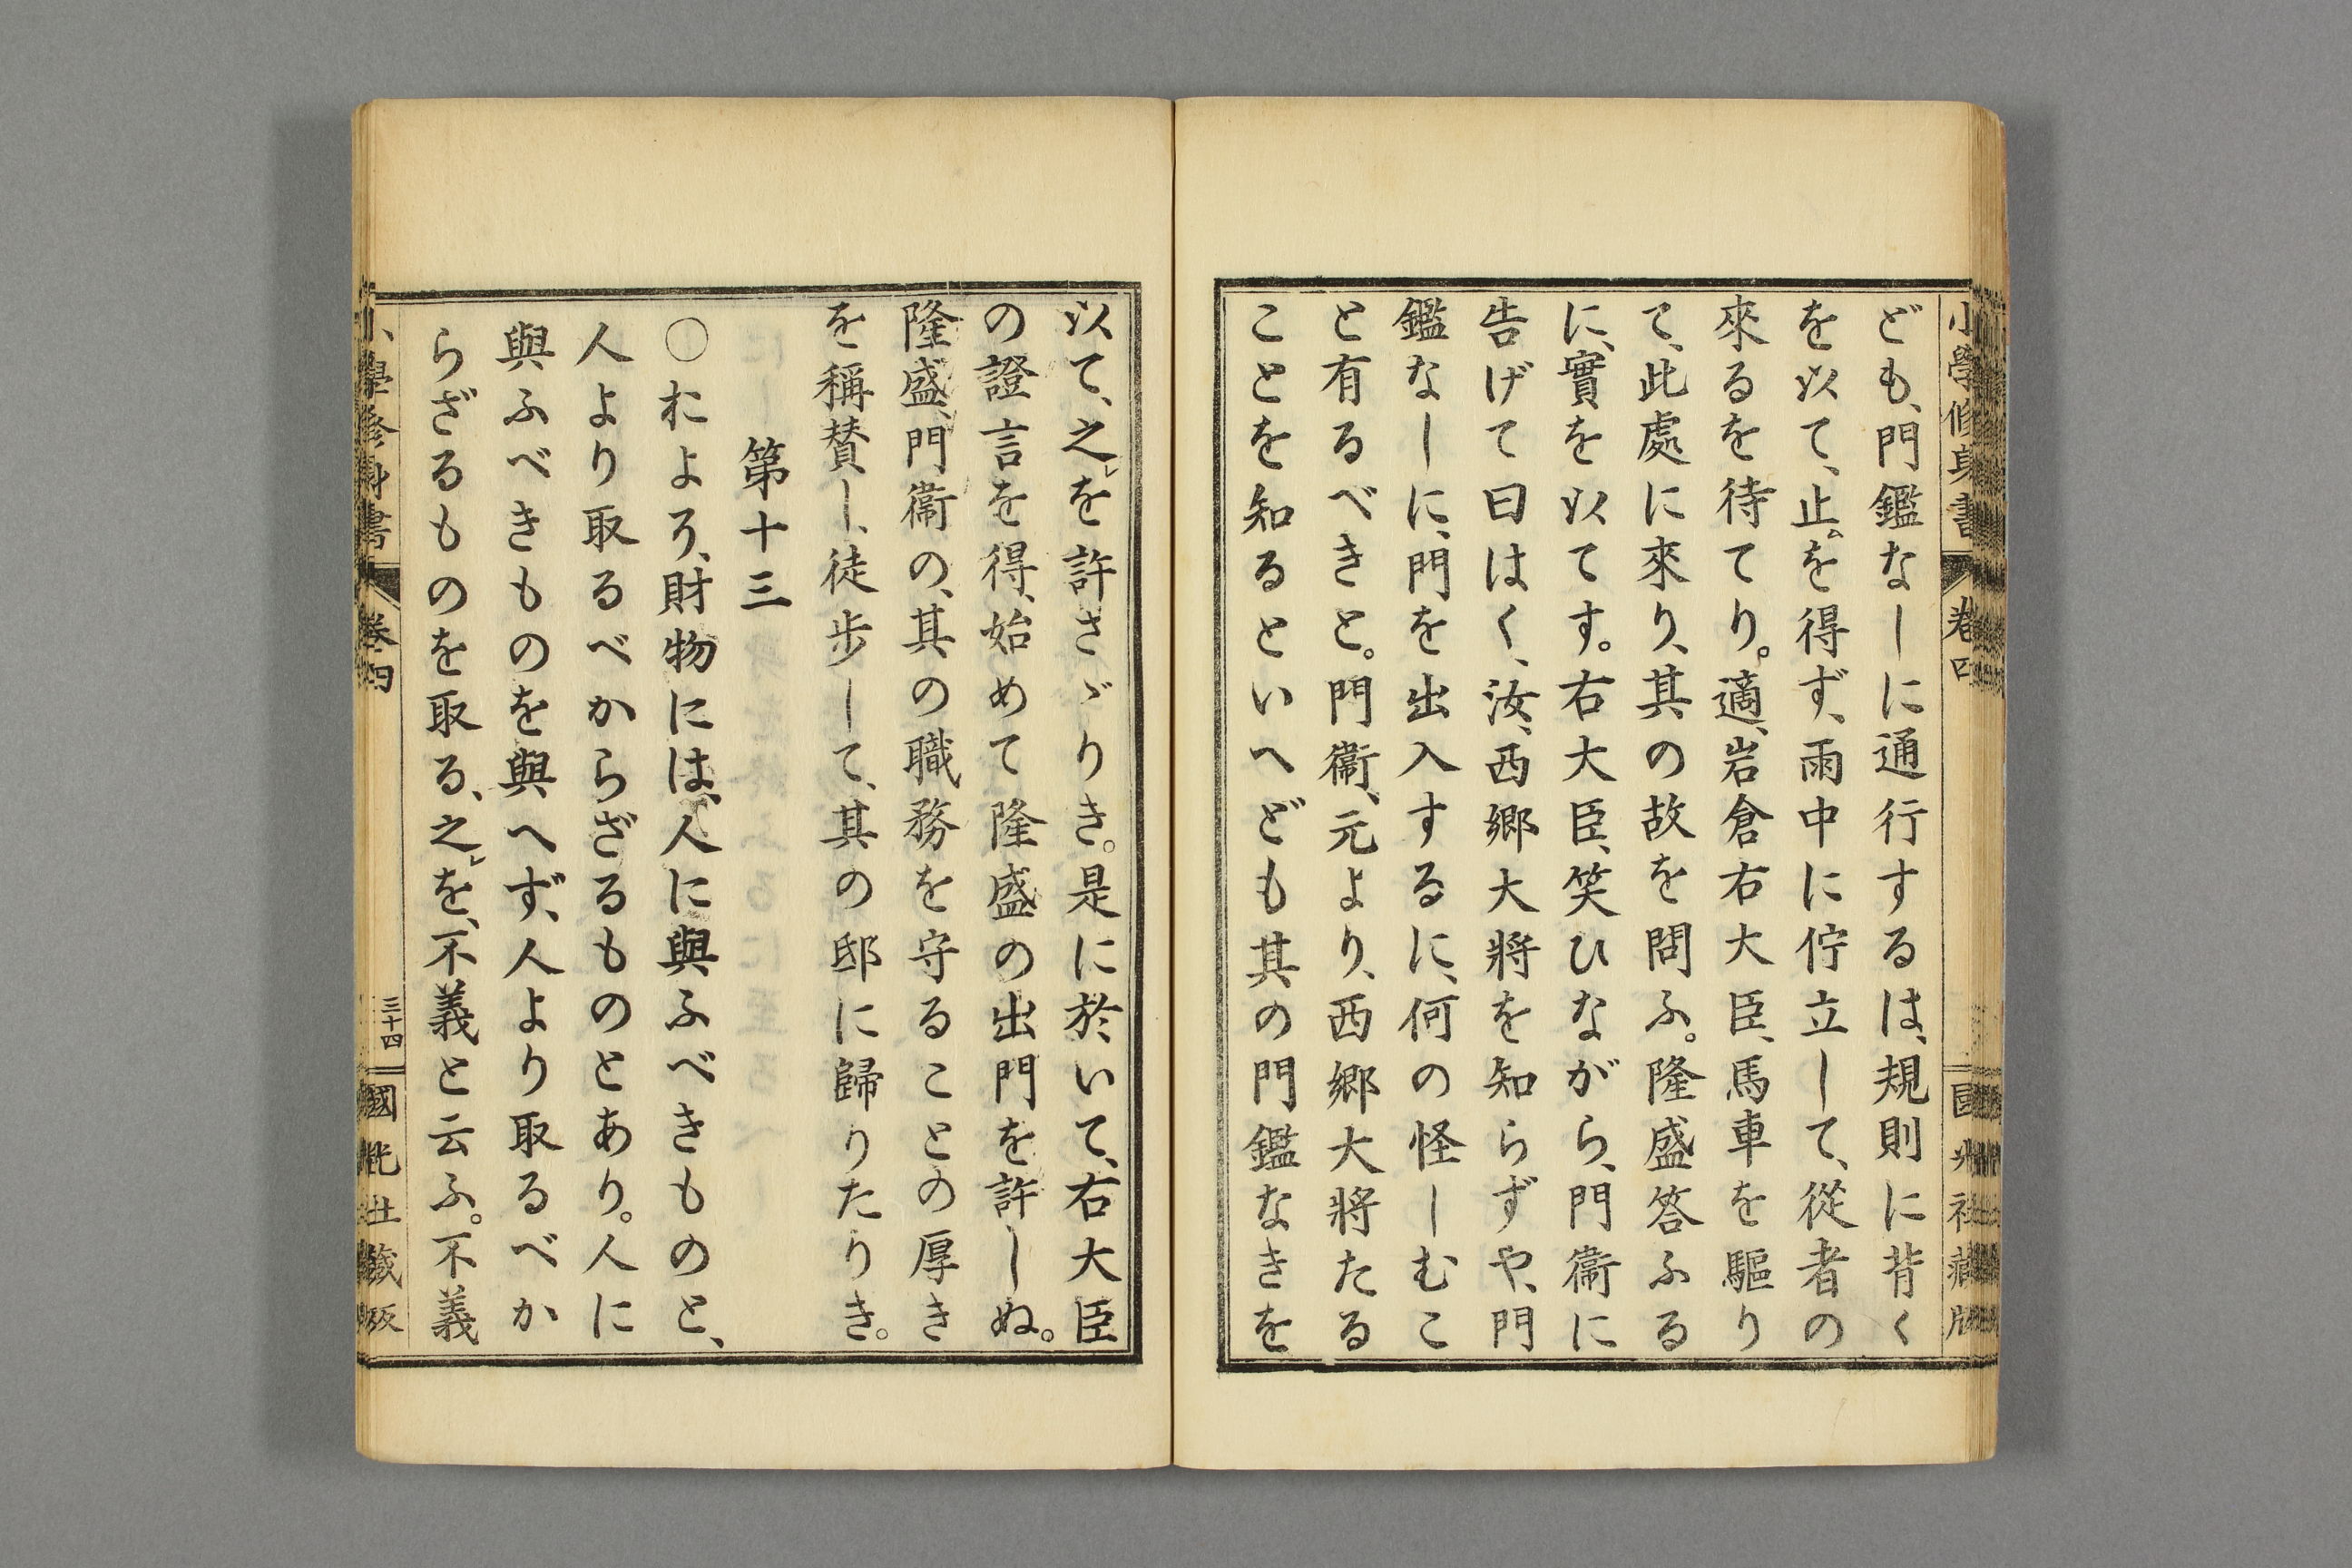 小學修身書 卷四 國光社藏版
ども、門鑑なしに通行するは、規則に背く
を以て、止ムを得ず、雨中に佇立して、從者の
來るを待てり。適、岩倉右大臣、馬車を驅り
て、此處に來り、其の故を問ふ。隆盛答ふる
に、實を以てす。右大臣、笑ひながら、門衞に
告げて曰はく、汝、西郷大將を知らずや、門
鑑なしに、門を出入するに、何の怪しむこ
と有るべきと。門衞、元より、西郷大將たる
ことを知るといへども其の門鑑なきを
以て、之レを許さゞりき。是に於いて、右大臣
の證言を得、始めて隆盛の出門を許しぬ。
隆盛、門衞の、其の職務を守ることの厚き
を稱賛し、徒歩して、其の邸に歸りたりき。
第十三
○おより、財物には、人に與ふべきものと、
人より取るべからざるものとあり。人に
與ふべきものを與へず、人より取るべか
らざるものを取る、之レを、不義と云ふ。不義
小學修身書 卷四 三十四 國光社藏版